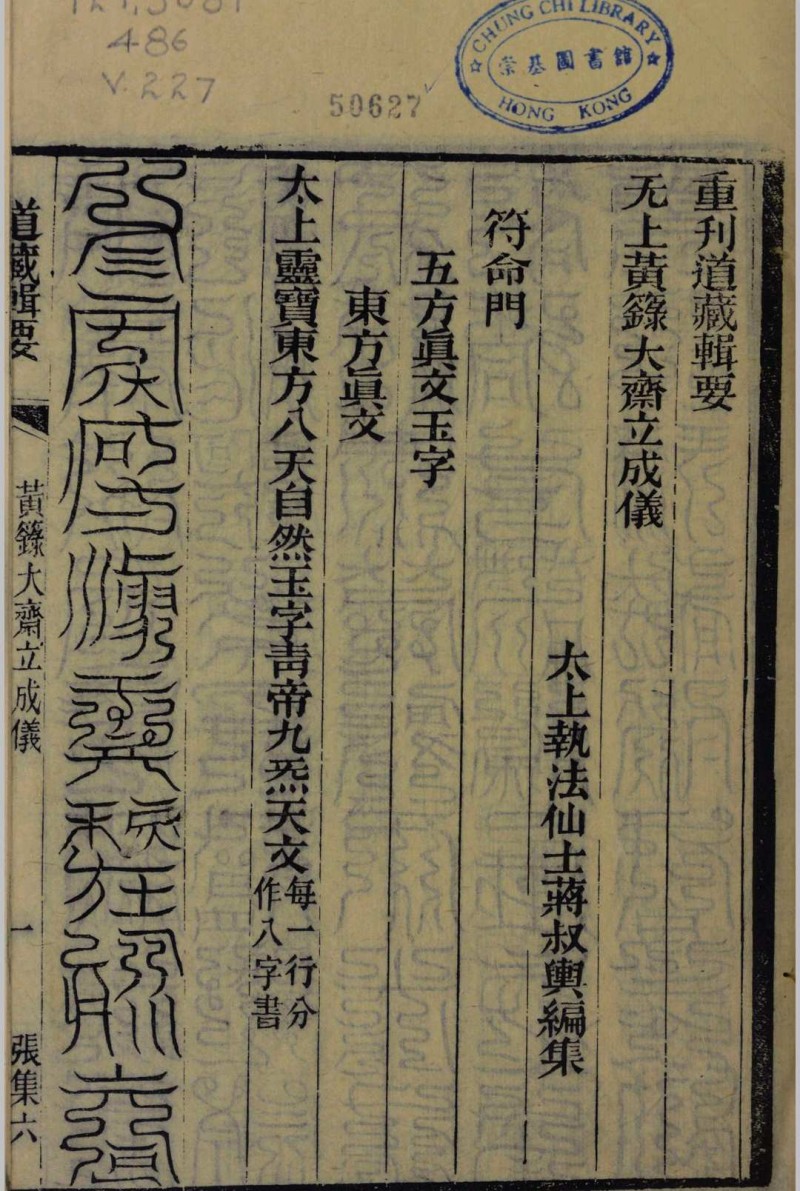 486
V.227
50627
CHUNG CHI LIBRARY
崇基圖書館
HONG KONG
重刋道藏輯要
无上黃籙大齋立成儀
太上執法仙士蔣叔輿編集
符命門
五方眞文玉字
東方眞文
太上靈寶東方八天自然玉字靑帝九炁天文每一行分作八字書
道藏輯要
黃籙大齋立成儀
一
張集六